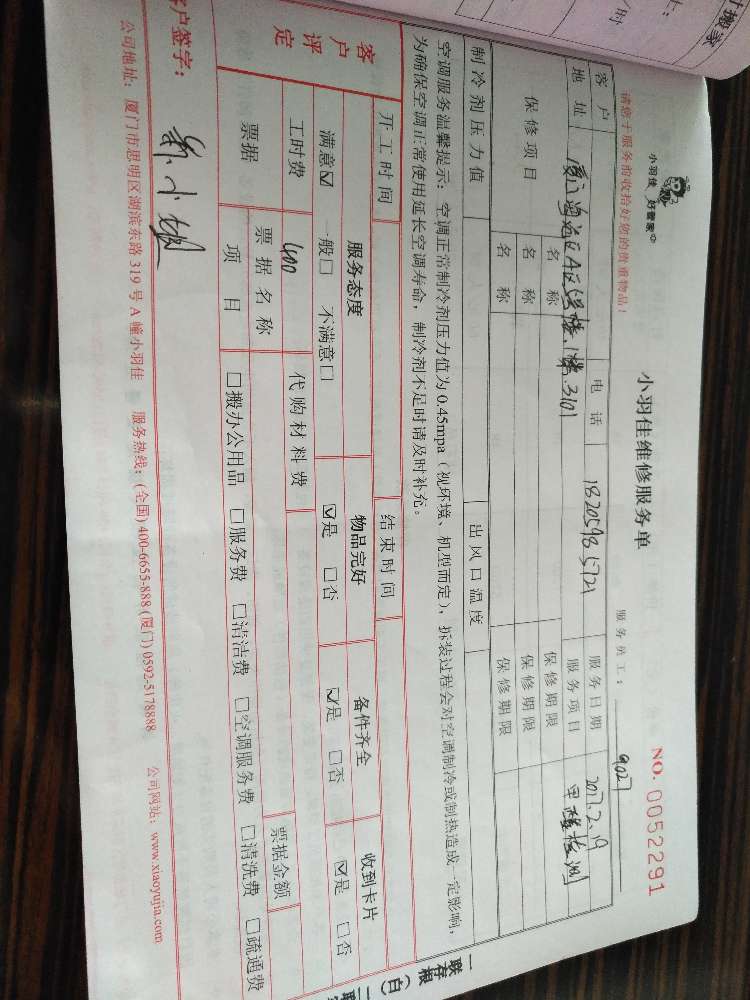 小羽佳 好管家
小羽佳维修服务单
NO. 0052291
请您于服务前收拾好您的贵重物品！
服务员工： 9027
客户地址
电话 18205985721
服务日期 2017.2.19
服务项目 甲醛检测
保修项目 名称 保修期限
名称 保修期限
名称 保修期限
制冷剂压力值 出风口温度
空调服务温馨提示：空调正常制冷剂压力值为0.45mpa（视环境、机型而定），拆装过程会对空调制冷或制热造成一定影响，
为确保空调正常使用延长空调寿命，制冷剂不足时请及时补充。
开工时间 结束时间
客户评定 服务态度 物品完好 备件齐全 收到卡片
满意☑ 一般□ 不满意□ ☑是 □否 ☑是 □否 ☑是 □否
工时费 400 代购材料费 票据金额
票据 票据名称
项目 □搬办公用品 □服务费 □清洁费 □空调服务费 □清洗费 □疏通费
客户签字：
公司地址：厦门市思明区湖滨东路319号A幢小羽佳 服务热线：(全国)400-6655-888 (厦门)0592-5178888 公司网站：www.xiaoyujia.com